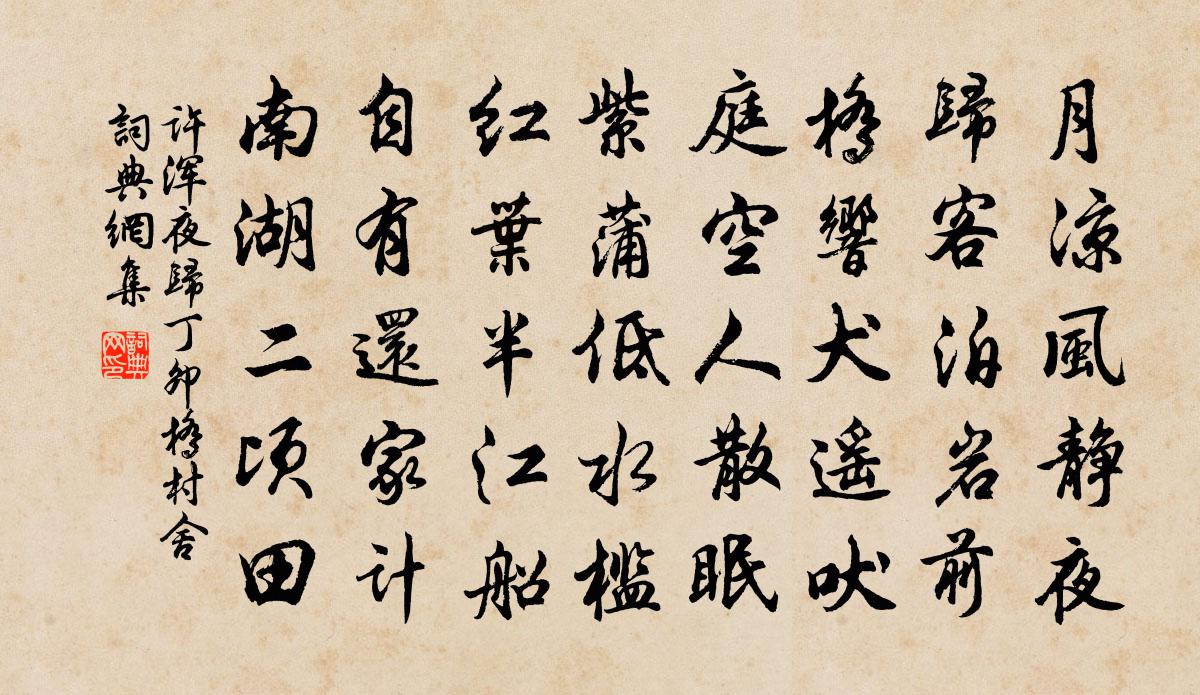 月涼風静夜
歸客泊岩前
橋響犬遥吠
庭空人散眠
紫蒲低水檻
紅葉半江船
自有還家計
南湖二顷田
许浑夜歸丁卯橋村舍
詞典網集
詞典
网印